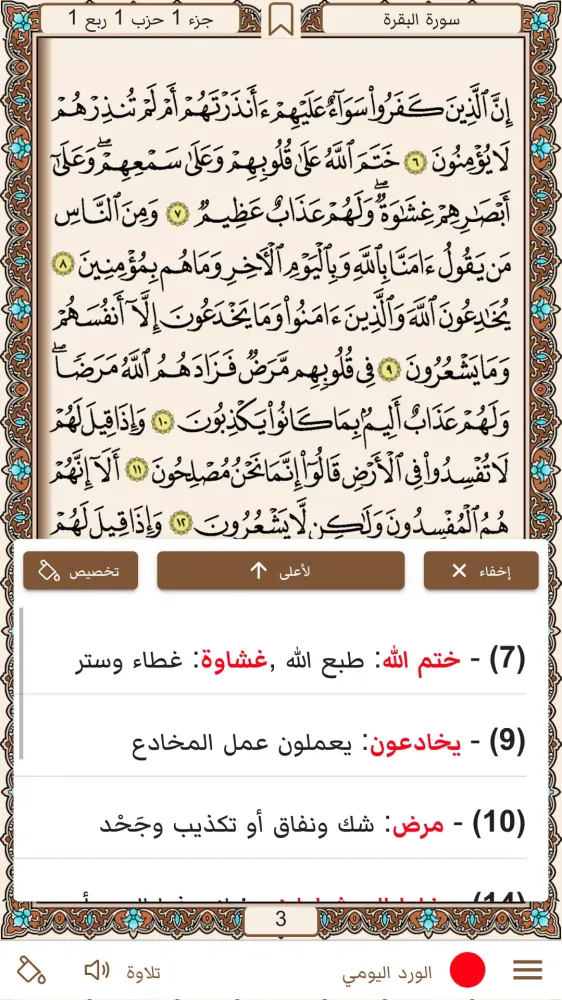 سورة البقرة
جزء 1 حزب 1 ربع 1
إِنَّ ٱلَّذِينَ كَفَرُوا۟ سَوَآءٌ عَلَيْهِمْ ءَأَنذَرْتَهُمْ أَمْ لَمْ تُنذِرْهُمْ
لَا يُؤْمِنُونَ ٦ خَتَمَ ٱللَّهُ عَلَىٰ قُلُوبِهِمْ وَعَلَىٰ سَمْعِهِمْ ۖ وَعَلَىٰٓ
أَبْصَـٰرِهِمْ غِشَـٰوَةٌ ۖ وَلَهُمْ عَذَابٌ عَظِيمٌ ٧ وَمِنَ ٱلنَّاسِ
مَن يَقُولُ ءَامَنَّا بِٱللَّهِ وَبِٱلْيَوْمِ ٱلْـَٔاخِرِ وَمَا هُم بِمُؤْمِنِينَ ٨
يُخَـٰدِعُونَ ٱللَّهَ وَٱلَّذِينَ ءَامَنُوا۟ وَمَا يَخْدَعُونَ إِلَّآ أَنفُسَهُمْ
وَمَا يَشْعُرُونَ ٩ فِى قُلُوبِهِم مَّرَضٌ فَزَادَهُمُ ٱللَّهُ مَرَضًا ۖ
وَلَهُمْ عَذَابٌ أَلِيمٌۢ بِمَا كَانُوا۟ يَكْذِبُونَ ١٠ وَإِذَا قِيلَ لَهُمْ
لَا تُفْسِدُوا۟ فِى ٱلْأَرْضِ قَالُوٓا۟ إِنَّمَا نَحْنُ مُصْلِحُونَ ١١ أَلَآ إِنَّهُمْ
هُمُ ٱلْمُفْسِدُونَ وَلَـٰكِن لَّا يَشْعُرُونَ ١٢ وَإِذَا قِيلَ لَهُمْ
إخفاء ×
لأعلى ↑
تخصيص
(7) - ختم الله: طبع الله ,غشاوة: غطاء وستر
(9) - يخادعون: يعملون عمل المخادع
(10) - مرض: شك ونفاق أو تكذيب وجَحْد
(14) -
3
الورد اليومي
تلاوة